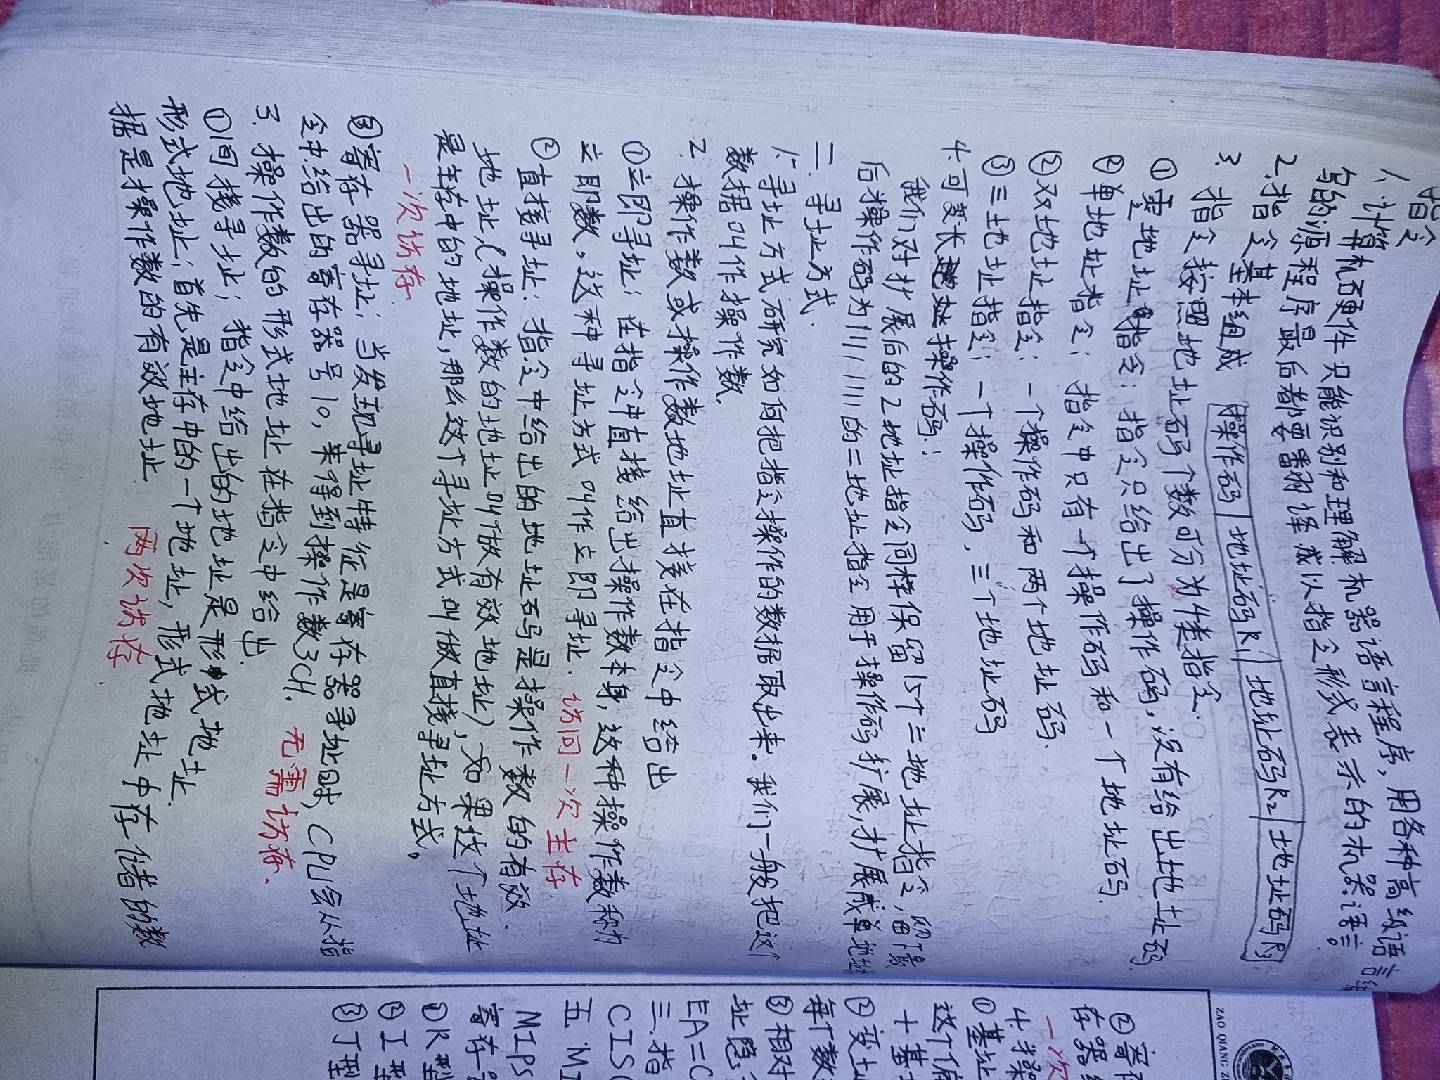 指令
1.计算机硬件只能识别和理解机器语言程序,用各种高级语言编
写的源程序最后都要翻译成以指令形式表示的机器语言.
2.指令基本组成 操作码 | 地址码R1 | 地址码R2 | 地址码R3
3.指令按照地址码个数可分为4类指令.
①零地址指令:指令只给出了操作码,没有给出地址码.
②单地址指令:指令中只有一个操作码和一个地址码.
②双地址指令:一个操作码和两个地址码.
③三地址指令:一个操作码,三个地址码
4.可变长操作码:
我们对扩展后的2地址指令同样保留15个二地址指令,留下最
后操作码为1111 1111的二地址指令用于操作码扩展,扩展成单地址
二.寻址方式.
1.寻址方式研究如何把指令操作的数据取出来。我们一般把这个
数据叫作操作数.
2.操作数或操作数地址直接在指令中给出
①立即寻址:在指令中直接给出操作数本身,这种操作数称为
立即数。这种寻址方式叫作立即寻址. 访问一次主存.
②直接寻址:指令中给出的地址码是操作数的有效.
地址,(操作数的地址叫做有效地址),如果这个地址
是主存中的地址,那么这个寻址方式叫做直接寻址方式。
一次访存.
③寄存器寻址:当发现寻址特征是寄存器寻址时,CPU会从指
令中给出的寄存器号10,来得到操作数3CH. 无需访存.
3.操作数的形式地址在指令中给出.
①间接寻址;指令中给出的地址是形式地址.
形式地址;首先是主存中的一个地址,形式地址中存储者的数
据是操作数的有效地址 两次访存.
ZAO QIANG
②寄存
存器
一次
4.操
①基址
这个偏
+基
②变址
每个数
③相对
址隐
EA=C
三.指
CISC
五.MI
MIPS
寄存器
①R型
②I型
③J型